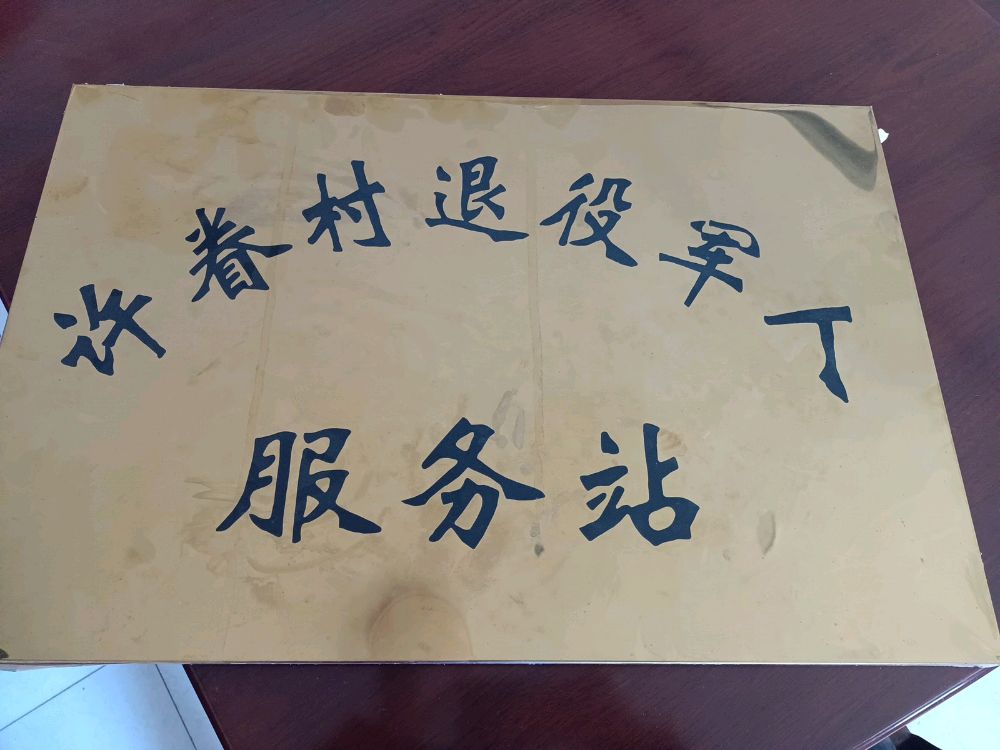 许眷村退役军丁
服务站